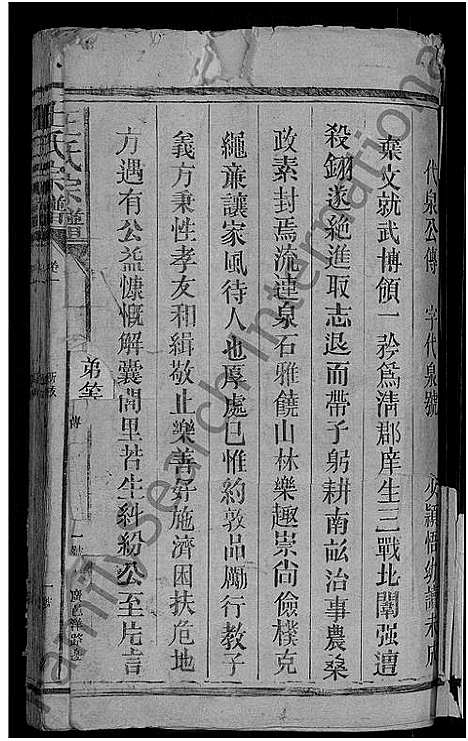 代泉公傳 字代泉號 少穎悟幼讀未成
棄文就武博領一矜爲清郡庠生三戰北闈强遭
殺鎩遂絶進取志退而帶子躬耕南畝治事農桑
政素封焉流連泉石雅饒山林樂趣崇尚儉樸克
繩亷讓家風待人也厚處己惟約敦品勵行教子
義方秉性孝友和緝敬止樂善好施濟困扶危地
方遇有公益慷慨解囊閭里苦生糾紛公至片言
王氏宗譜
卷一
弟筌
傳
familysearch international